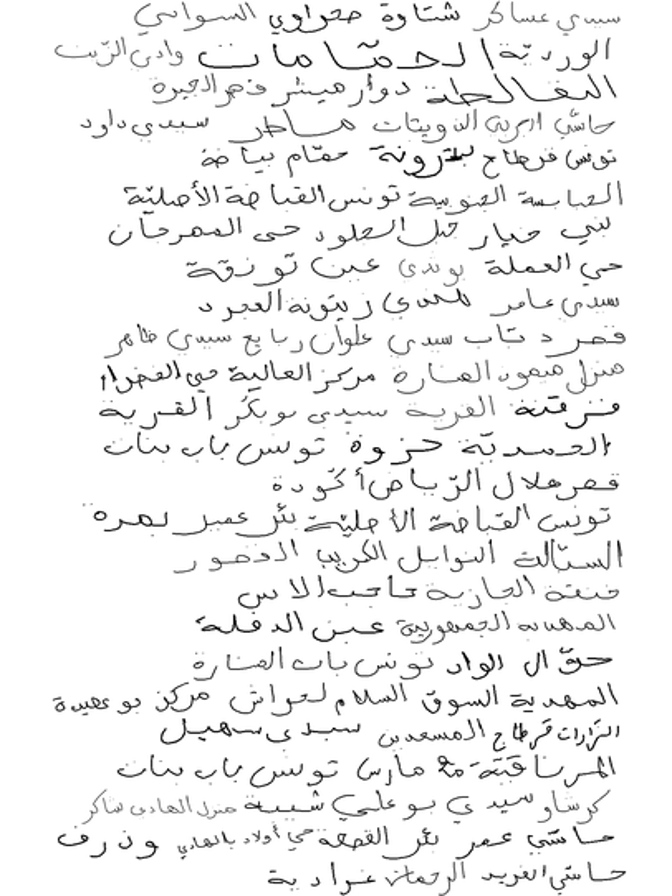 سيدي عساكر شتاوة صحراوي السواسي
الوردية الحمامات وادي الزيت
البغالطة دوار هيشر قصر الجيرة
حاشي الذويبات ماطر سيدي داود
تونس قرطاج بيترونة حمام بياضة
العباسة الجنوبية تونس القباضة الأصلية
لبني خيار جبل الجلود حي المهرجان
حي العملة بوغدي عين توزقة
سيدي عامر زيتونة
قصر سيدي علوان ربايع سيدي ظاهر
منزل ميمون المنارة مركز العالية حي الخضراء
قرقنة القرية سيدي بوبكر القرية
الحمدية حزوة تونس باب بنات
قصر هلال الرياض أكودة
تونس القباضة الأصلية بئر عمير نمرة
الستالة النوايل الكريب القصور
خنقة الجازية حاجب لاس
المهدية الجمهورية عين الدفلة
حق ال الواد تونس باب المنارة
المهدية السوق السلام لعواش مركز بوعميدة
الزارات قرطاج المسعدين سيدي سهيل
المرناقية 20 مارس تونس باب بنات
كرشاو سيدي بوعلي شيبة منزل الهادي شاكر
حاسي عمر بئر القصعة حي أولاد بالهادي وذرف
حاسي الفريد الرحمان عرادية